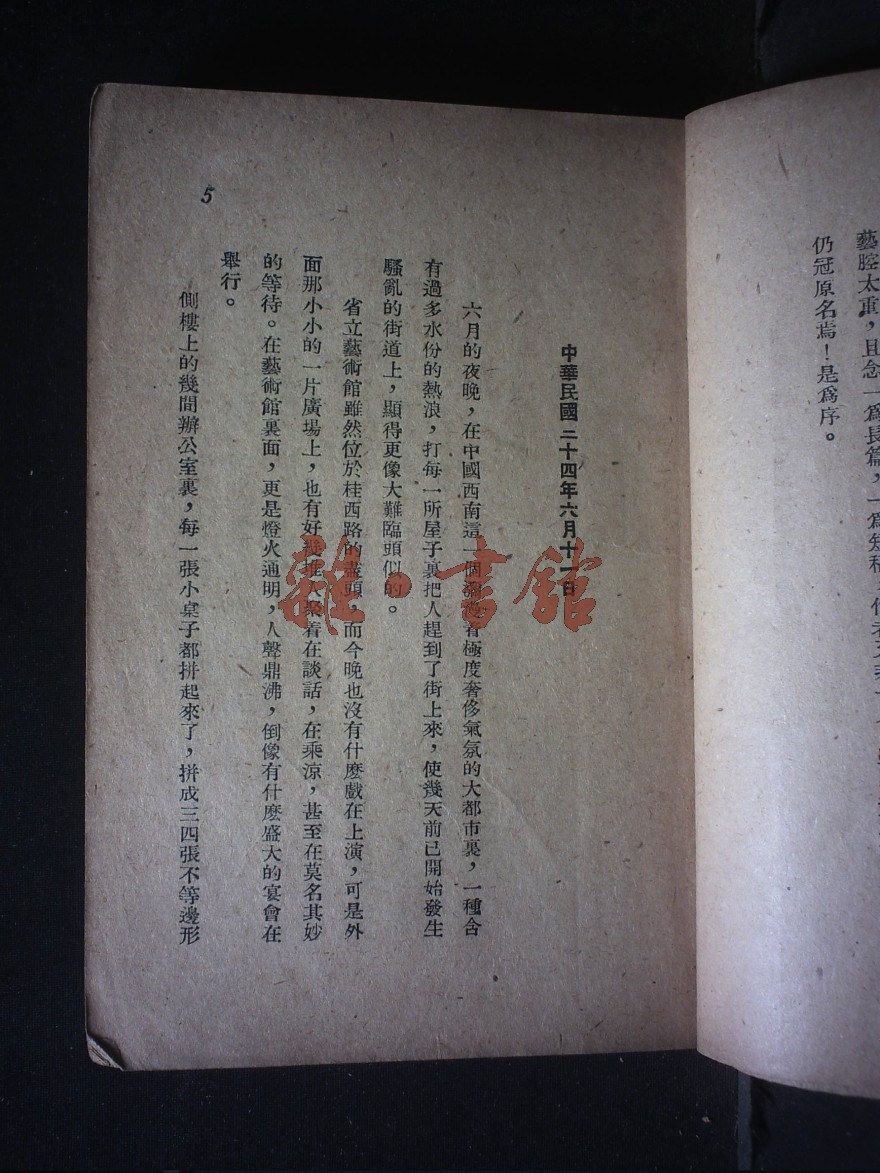 藝腔太重，且念一爲長篇，一爲短稿
仍冠原名焉！是爲序。
中華民國 二十四年六月十一日
六月的夜晚，在中國西南這一個瀰漫着極度奢侈氣氛的大都市裏，一種含
有過多水份的熱浪，打每一所屋子裏把人趕到了街上來，使幾天前已開始發生
騷亂的街道上，顯得更像大難臨頭似的。
省立藝術館雖然位於桂西路的盡頭，而今晚也沒有什麼戲在上演，可是外
面那小小的一片廣場上，也有好幾堆人聚着在談話，在乘涼，甚至在莫名其妙
的等待。在藝術館裏面，更是燈火通明，人聲鼎沸，倒像有什麼盛大的宴會在
舉行。
側樓上的幾間辦公室裏，每一張小桌子都拼起來了，拼成三四張不等邊形
5
雜·書館